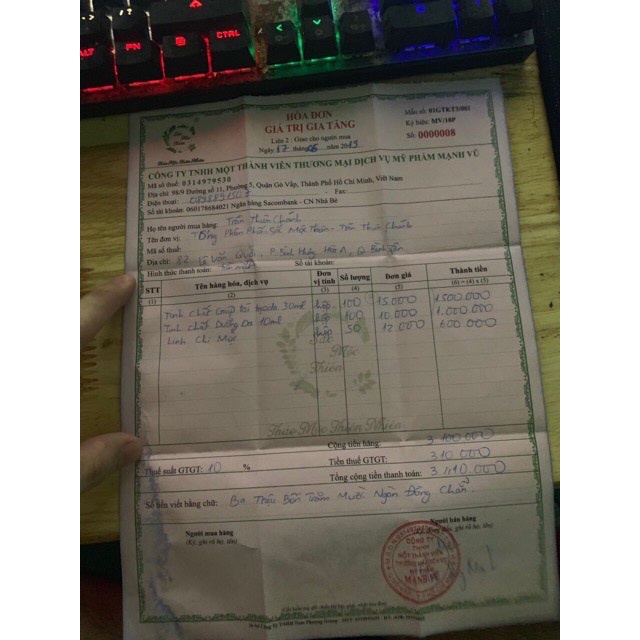 ALT
FN
CTRL
HÓA ĐƠN
GIÁ TRỊ GIA TĂNG
Liên 2 : Giao cho người mua
Ngày 17 tháng 06 năm 2019
Mẫu số: 01GTKT3/001
Ký hiệu: MV/18P
Số: 0000008
CÔNG TY TNHH MỘT THÀNH VIÊN THƯƠNG MẠI DỊCH VỤ MỸ PHẨM MẠNH VŨ
Mã số thuế: 0314979530
Địa chỉ: 98/9 Đường số 11, Phường 5, Quận Gò Vấp, Thành Phố Hồ Chí Minh, Việt Nam
Điện thoại: - Fax:
Số tài khoản: 060178684021 Ngân hàng Sacombank - CN Nhà Bè
Họ tên người mua hàng: Trần Thừa Chánh
Tên đơn vị: Tổng Phân Phối Sỉ Mộc Thiên - Trần Thừa Chánh
Mã số thuế:
Địa chỉ: 82 Lê Văn Quới, P Bình Hưng Hòa A, Q Bình Tân
Hình thức thanh toán: Số tài khoản:
STT Tên hàng hóa, dịch vụ Đơn vị tính Số lượng Đơn giá Thành tiền
(1) (2) (3) (4) (5) (6) = (4) x (5)
Tinh Chất 30ml hộp 100 15.000 1.500.000
Tinh Chất Dưỡng Da 10ml hộp 100 10.000 1.000.000
Linh Chi Mộc hộp 50 12.000 600.000
Mộc
Thiên
Thảo Mộc Thiên Nhiên
Cộng tiền hàng: 3.100.000
Thuế suất GTGT: 10 % Tiền thuế GTGT: 310.000
Tổng cộng tiền thanh toán: 3.410.000
Số tiền viết bằng chữ: Ba Triệu Bốn Trăm Mười Ngàn Đồng Chẵn.
Người mua hàng
(Ký, ghi rõ họ, tên)
Người bán hàng
(Ký, ghi rõ họ, tên)
CÔNG TY
TNHH
MỘT THÀNH VIÊN
THƯƠNG MẠI DỊCH VỤ
MỸ PHẨM
MẠNH VŨ